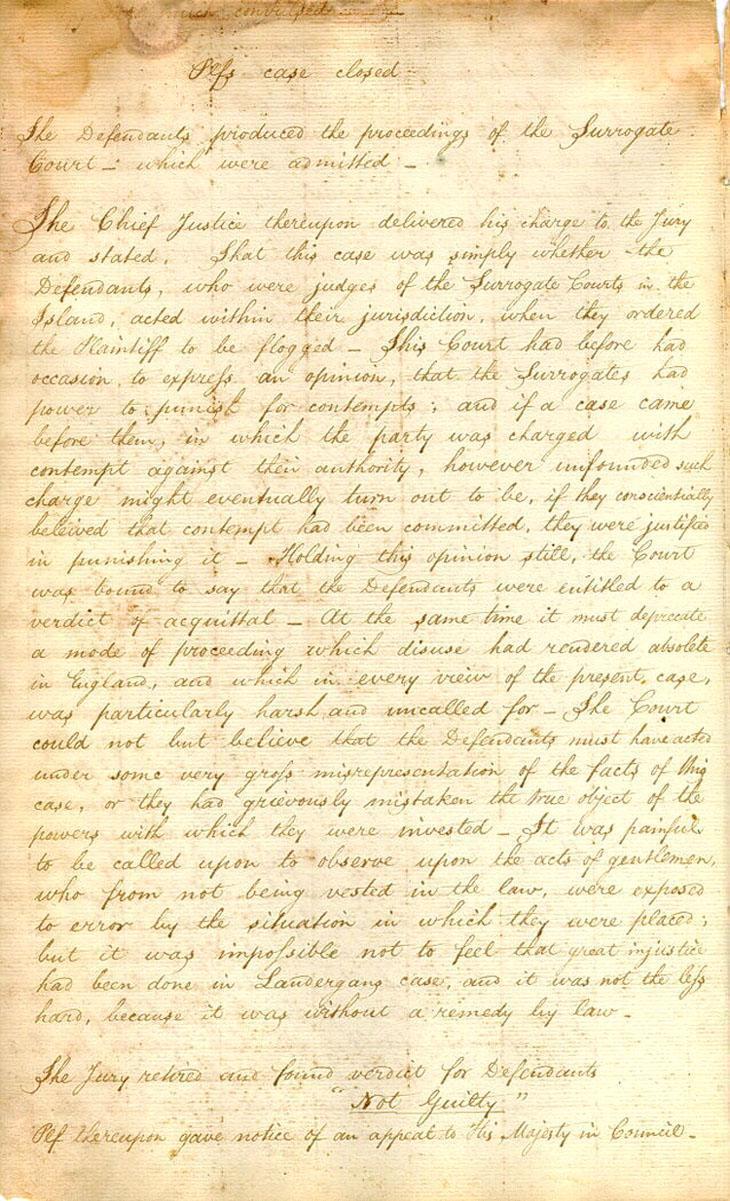 much convulsed
Plfs case closed
The Defendants produced the proceedings of the Surrogate
Court – which were admitted –
The Chief Justice thereupon delivered his charge to the Jury
and stated. That this case was simply whether the
Defendants, who were judges of the Surrogate Courts in the
Island, acted within their jurisdiction, when they ordered
the Plaintiff to be flogged – This Court had before had
occasion to express an opinion, that the Surrogates had
power to punish for contempts; and if a case came
before them, in which the party was charged with
contempt against their authority, however unfounded such
charge might eventually turn out to be, if they conscientially
beleived that contempt had been committed, they were justified
in punishing it – Holding this opinion still, the Court
was bound to say that the Defendants were entitled to a
verdict of acquittal – At the same time it must deprecate
a mode of proceeding which disuse had rendered absolete
in England, and which in every view of the present case,
was particularly harsh and uncalled for – The Court
could not but believe that the Defendants must have acted
under some very gross misrepresentation of the facts of this
case, or they had grievously mistaken the true object of the
powers with which they were invested – It was painful
to be called upon to observe upon the acts of gentlemen,
who from not being vested in the law, were exposed
to error by the situation in which they were placed;
but it was impossible not to feel that great injustice
had been done in Landergans case, and it was not the less
hard, because it was without a remedy by law –
The Jury retired and found verdict for Defendants
"Not Guilty"
Plf thereupon gave notice of an appeal to His Majesty in Council –